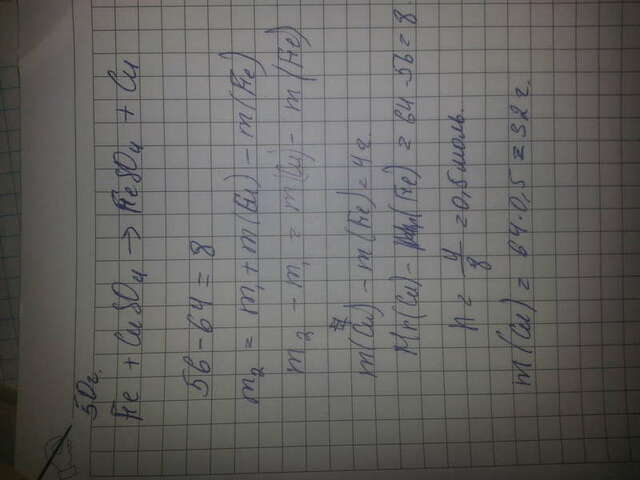 50г.
Fe + CuSO4 → FeSO4 + Cu
56-64 = 8
m2 = m1 + m(Cu) - m(Fe)
m2 - m1 = m(Cu) - m(Fe)
m(Cu) - m(Fe) = 4г
Mr(Cu) - Mr(Fe) = 64-56 = 8.
n = 4/8 = 0,5 моль.
m(Cu) = 64·0,5 = 32 г.